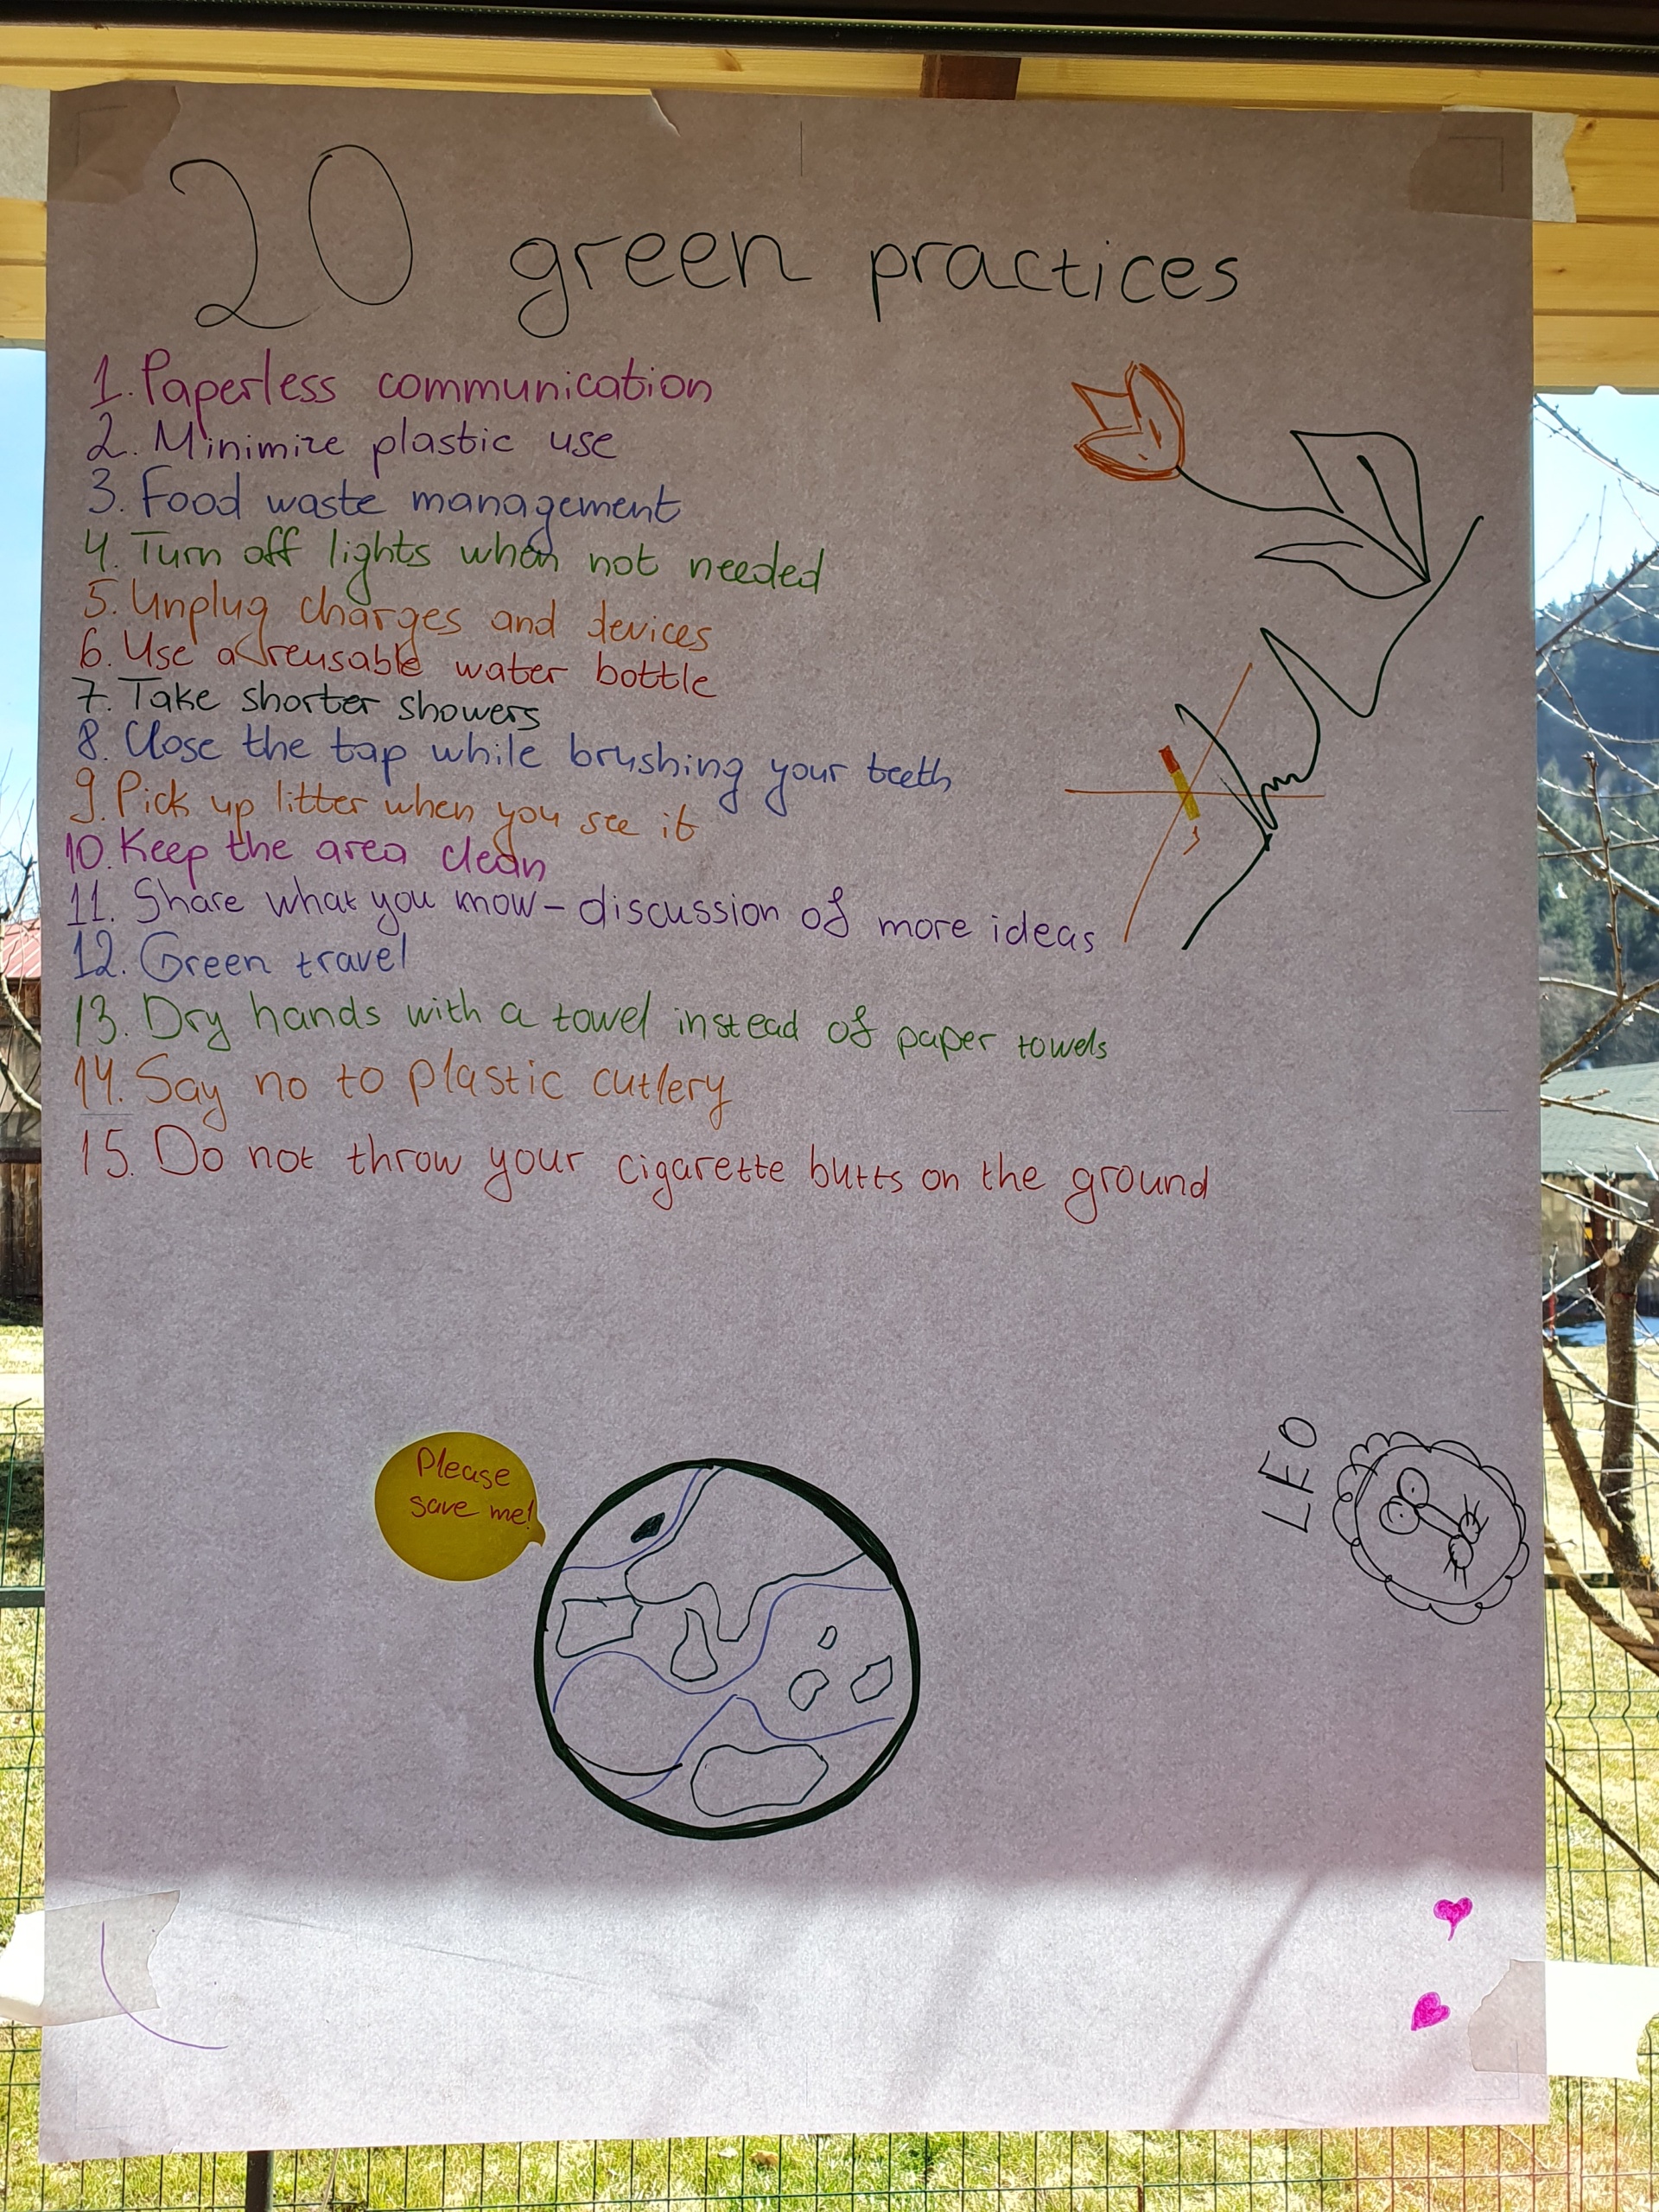 20 green practices
1. Paperless communication
2. Minimize plastic use
3. Food waste management
4. Turn off lights when not needed
5. Unplug charges and devices
6. Use a reusable water bottle
7. Take shorter showers
8. Close the tap while brushing your teeth
9. Pick up litter when you see it
10. Keep the area clean
11. Share what you know - discussion of more ideas
12. Green travel
13. Dry hands with a towel instead of paper towels
14. Say no to plastic cutlery
15. Do not throw your cigarette butts on the ground
Please
save me!
LEO